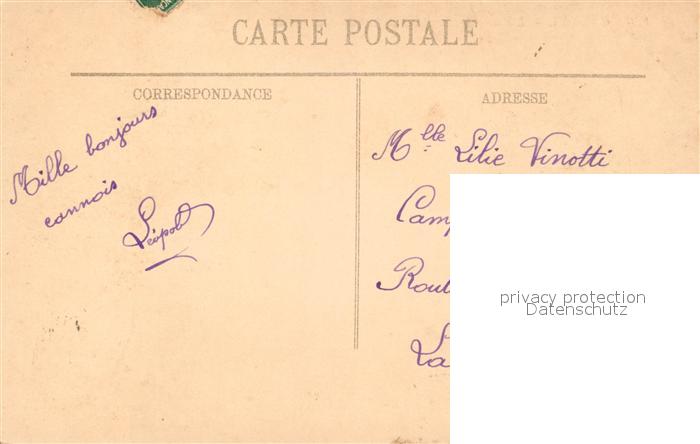 CARTE POSTALE
CORRESPONDANCE
Mille bonjours
cannois
Léopold
ADRESSE
Mlle Lilie Vinotti
Camp
Rout
La
privacy protection
Datenschutz